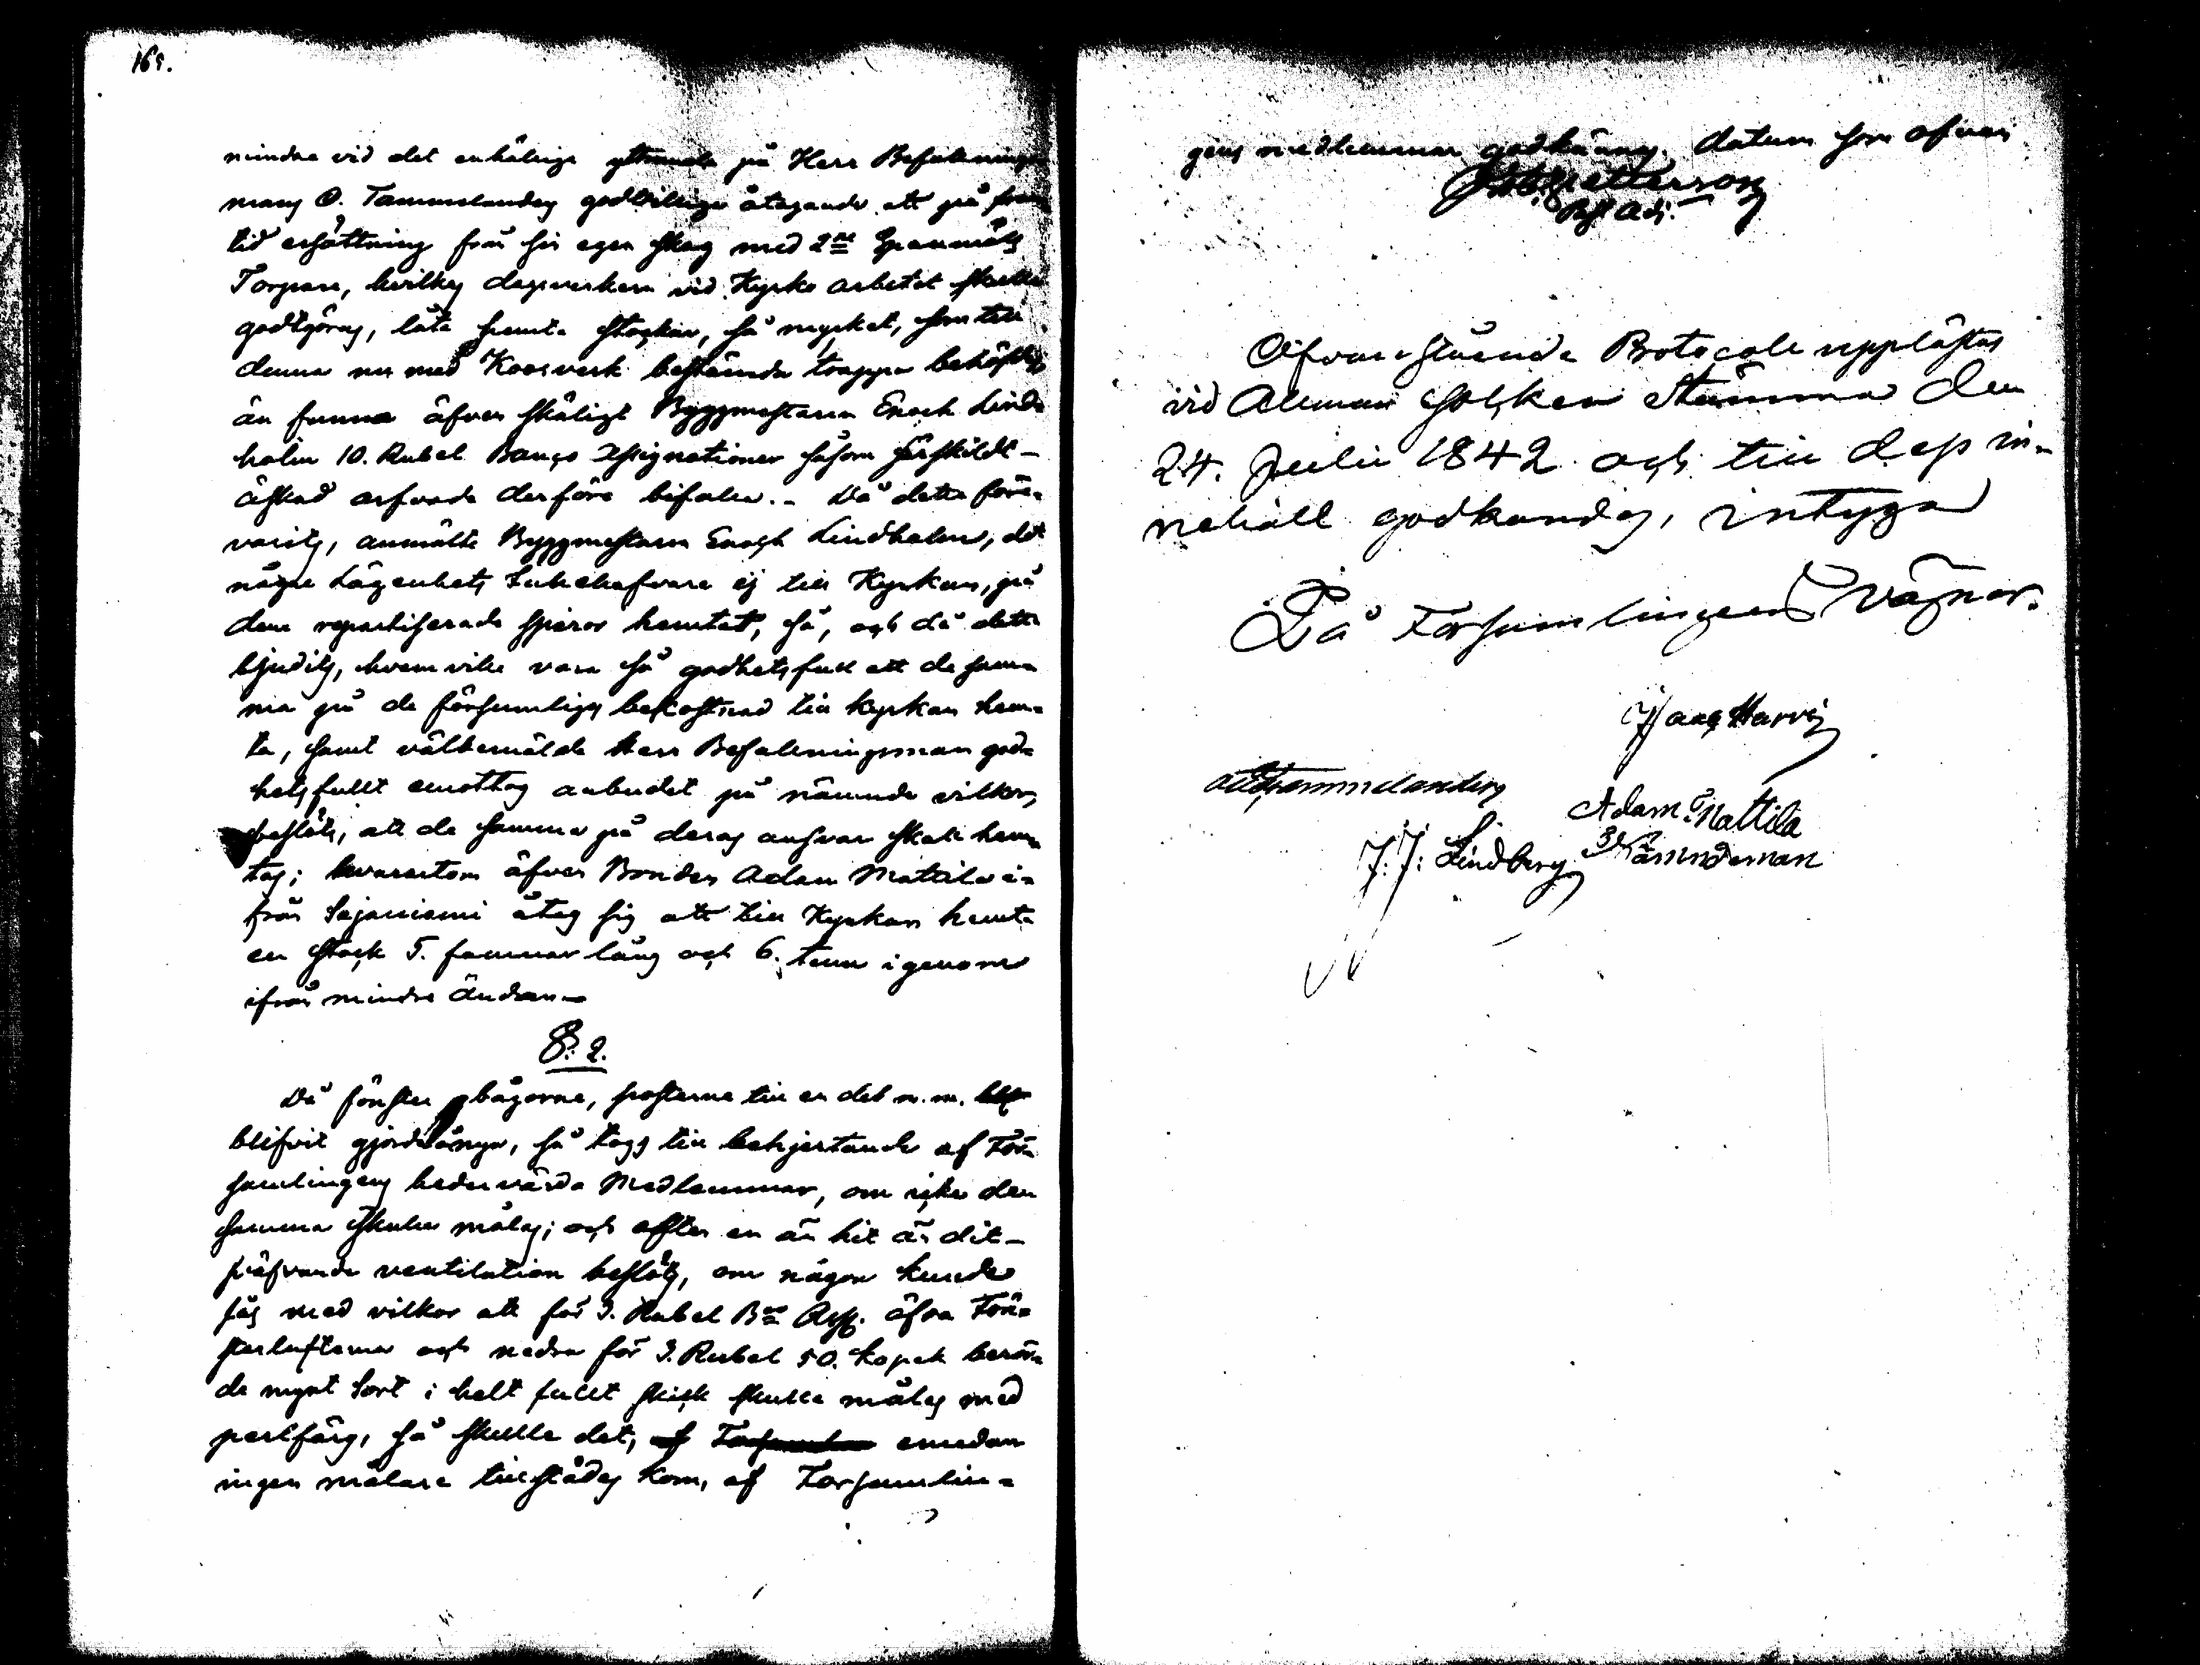 165.
mindre vid det enhälliga yttrande på Herr Befallnings
mans O. Tammelanders godtvilliga åtagande att på fram
tid ersättning från sin egen skog med 2ne Spanmåls
Torpare, hvilkas dagsverken vid Kyrko arbetet skulle
godtgöras, låta hemta stockar, så mycket, som till
denna nu med Koorverk bestämda trappa behöfdes
än funno äfven skäligt Byggmestaren Enoch Lind
holm 10. Rubel Banco Assignationer såsom särskildt
äskad arfvode derföre bifalla. - Då detta före-
varits, anmälte Byggmestaren Enoch Lindholm, att
några Lägenhets Innehafvare ej till Kyrkan, på
dem repartiserade sparrar hemtat, så, och då detta
bjudits, hvem ville vara så godhetsfull att de sam-
ma på de försumliges bekostnad till kyrkan hem-
ta, samt välbemälde Herr Befallningsman god-
hetsfullt emottog anbudet på nämnde vilkor,
beslöts, att de samma på deras ansvar skola hem-
tas; hvarutom äfven Bonden Adam Mattila i-
från Sajaniemi åtog sig att till Kyrkan hemta
en stock 5. famnar lång och 6. tum igenom
ifrån mindre ändan.
§. 2.
Då fönster bågorne, posterne till en del m. m.
blifvit gjorde ånyo, så togs till behjertande af För-
samlingens hedervärda Medlemmar, om icke den
samma skulle målas; och efter en än hit än dit-
sväfvande ventilation beslöts, om någon kunde
fås med vilkor att för 3. Rubel Bco Ass. öfra Fön-
sterlufterna och nedra för 3. Rubel 50. kopek berör-
de mynt sort i helt fullt skick skulle målas med
perlfärg, så skulle det, af emedan
ingen målare tillstädes kom, af Församlin-
gens medlemmar godkännas. Datum som ofvan
Petterson
Past. Adj.
Ofvanstående Protocoll upplästes
vid Allmän Socken Stämma den
24. Julii 1842 och till dess in-
nehåll godkändes, intyga
På Församlingens Vägnar.
Isaac Harvi
O. Tammelander
Adam Mattila
J. J. Lindberg Nämndeman